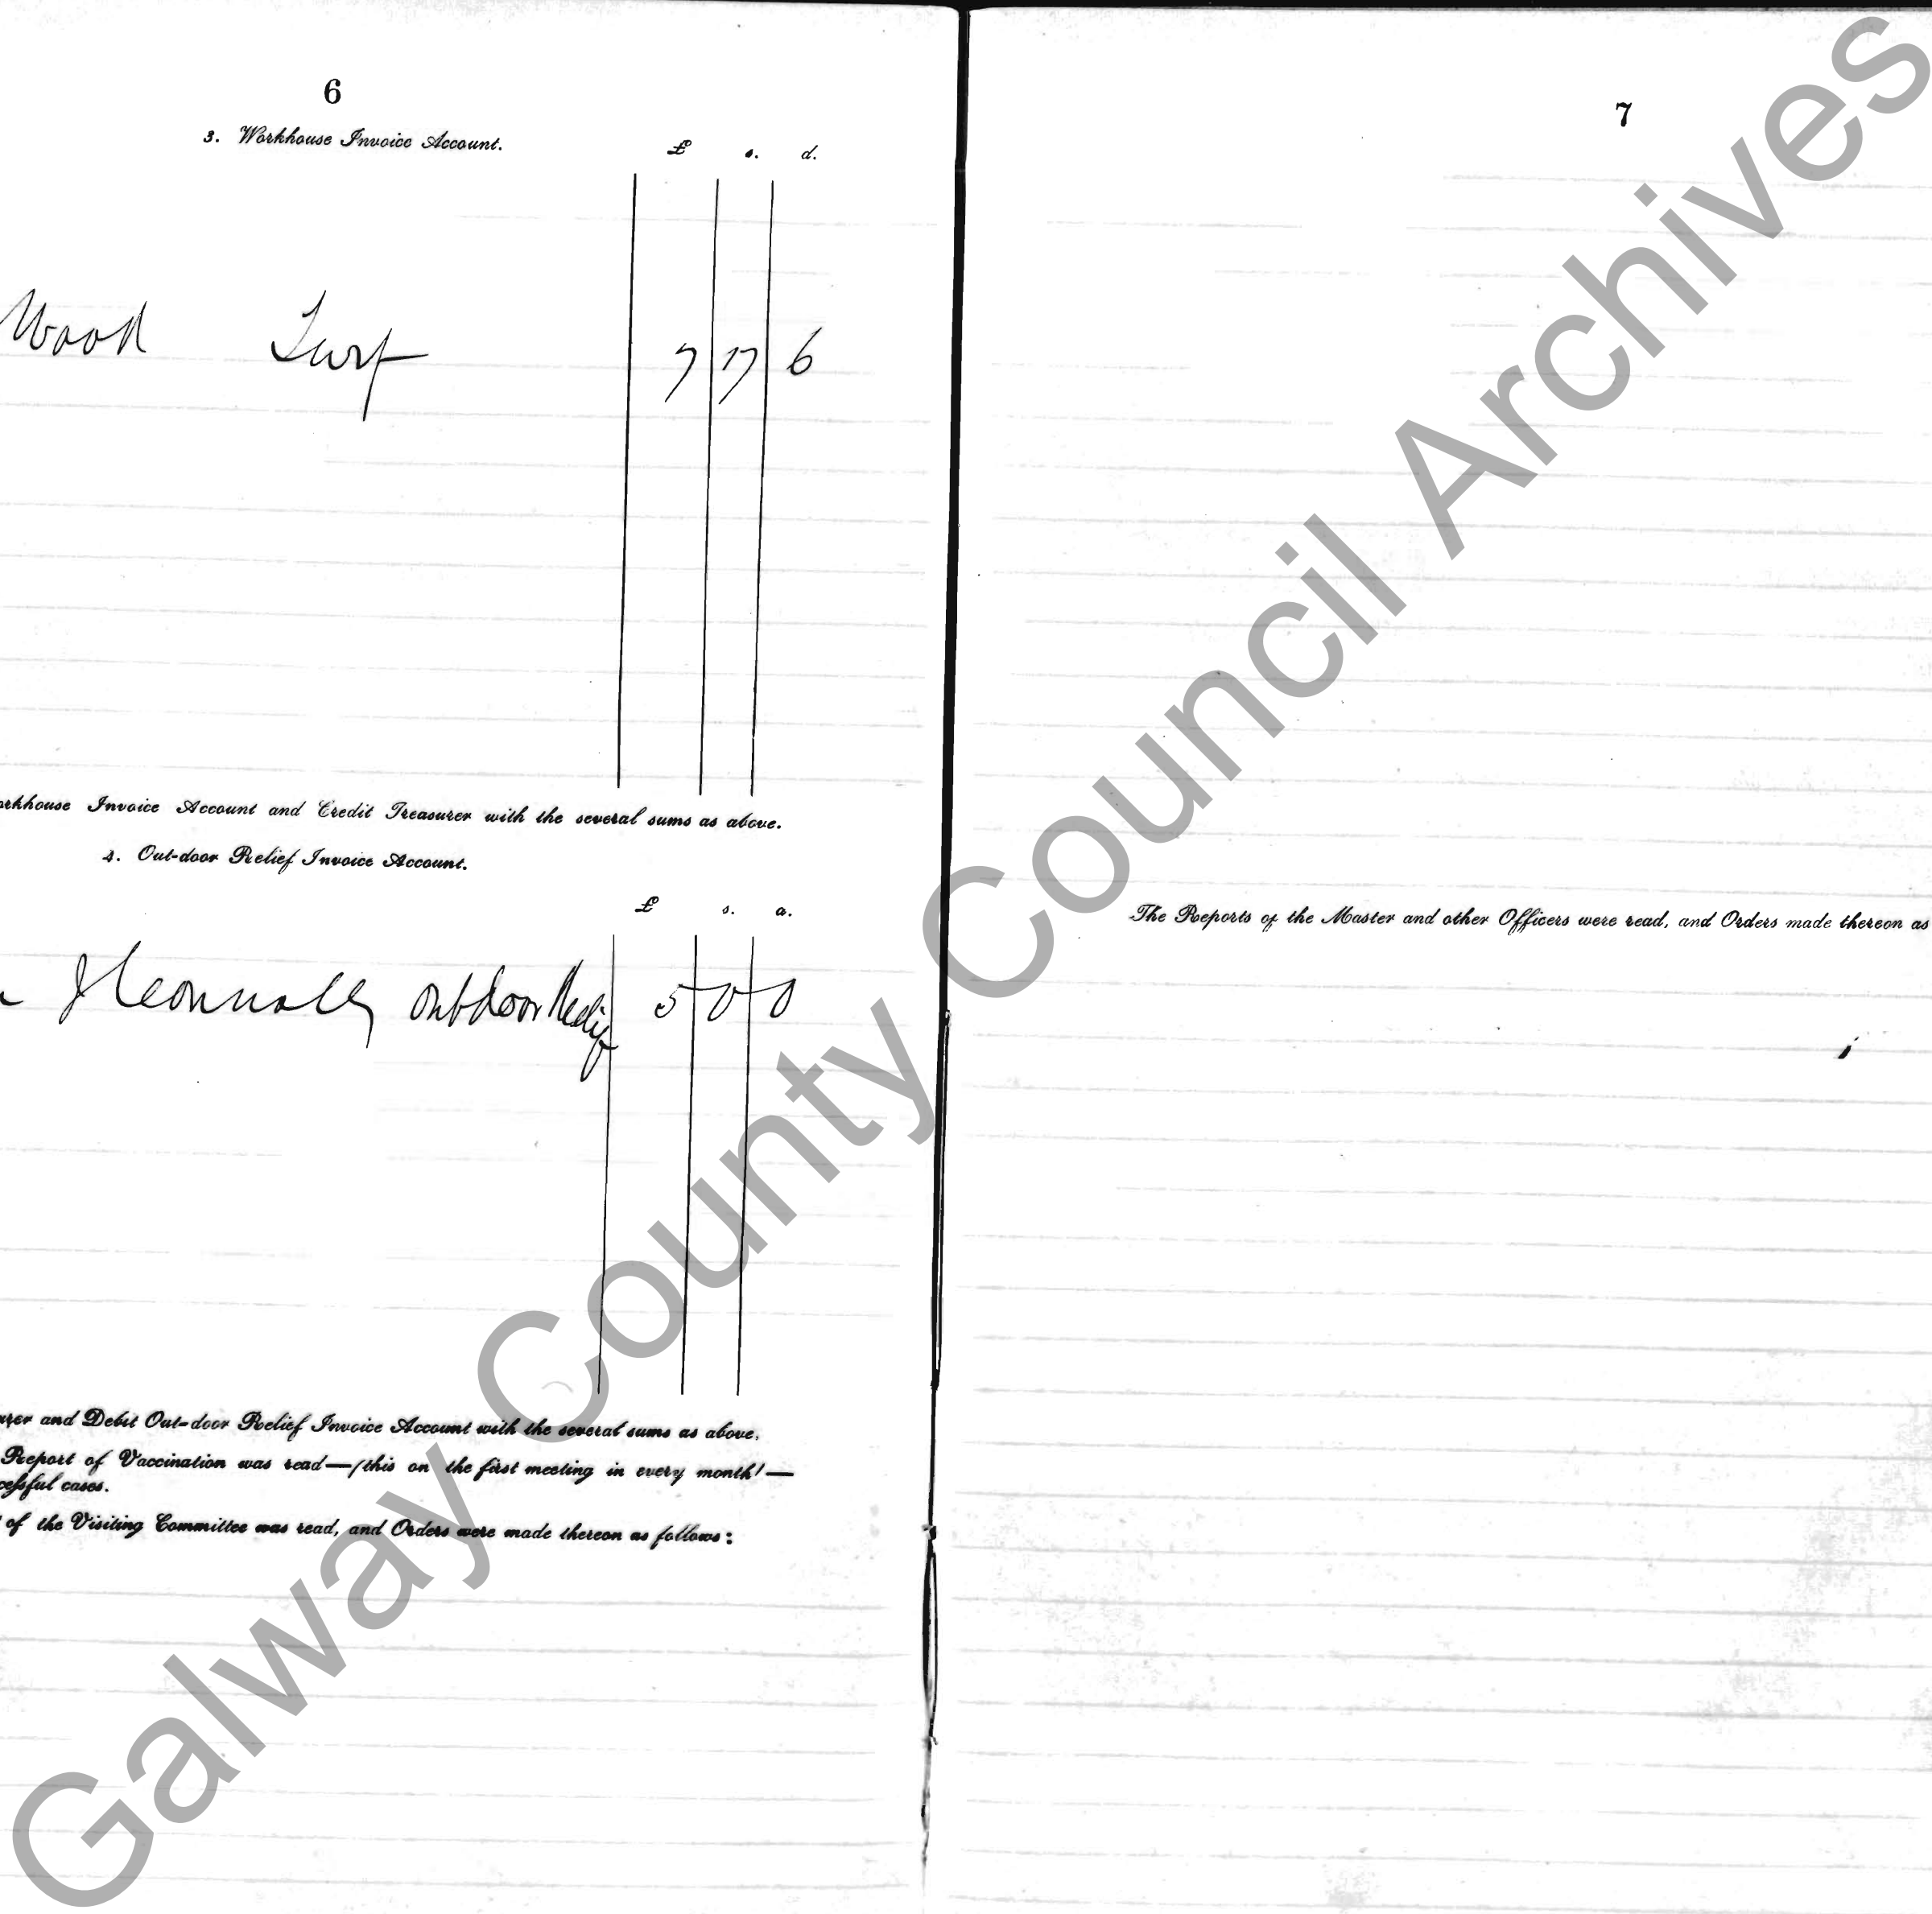 6
3. Workhouse Invoice Account.
£ s. d.
Wood Turf 7 17 6
Invoice Account and Credit Treasurer with the several sums as above.
4. Out-door Relief Invoice Account.
£ s. d.
Outdoor Relief 5 0 0
and Debit Out-door Relief Invoice Account with the several sums as above.
Report of Vaccination was read—(this on the first meeting in every month)—
cases.
of the Visiting Committee was read, and Orders were made thereon as follows:
7
The Reports of the Master and other Officers were read, and Orders made thereon as
Galway County Council Archives